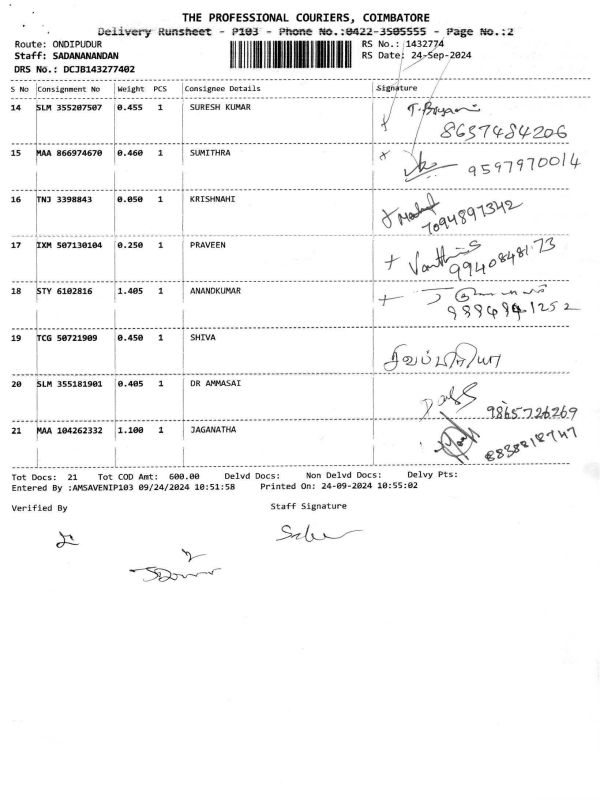 THE PROFESSIONAL COURIERS, COIMBATORE
Delivery Runsheet - P103 - Phone No.:0422-3505555 - Page No.:2
Route: ONDIPUDUR RS No.: 1432774
Staff: SADANANANDAN RS Date: 24-Sep-2024
DRS No.: DCJB143277402
S No Consignment No Weight PCS Consignee Details Signature
14 SLM 355207507 0.455 1 SURESH KUMAR
8637484206
15 MAA 866974670 0.460 1 SUMITHRA
9597970014
16 TNJ 3398843 0.050 1 KRISHNAHI
7094897342
17 IXM 507130104 0.250 1 PRAVEEN
9940848173
18 STY 6102816 1.405 1 ANANDKUMAR
19 TCG 50721909 0.450 1 SHIVA
சிவப்பிரியா
20 SLM 355181901 0.405 1 DR AMMASAI
9865726269
21 MAA 104262332 1.100 1 JAGANATHA
8838218747
Tot Docs: 21 Tot COD Amt: 600.00 Delvd Docs: Non Delvd Docs: Delvy Pts:
Entered By :AMSAVENIP103 09/24/2024 10:51:58 Printed On: 24-09-2024 10:55:02
Verified By Staff Signature